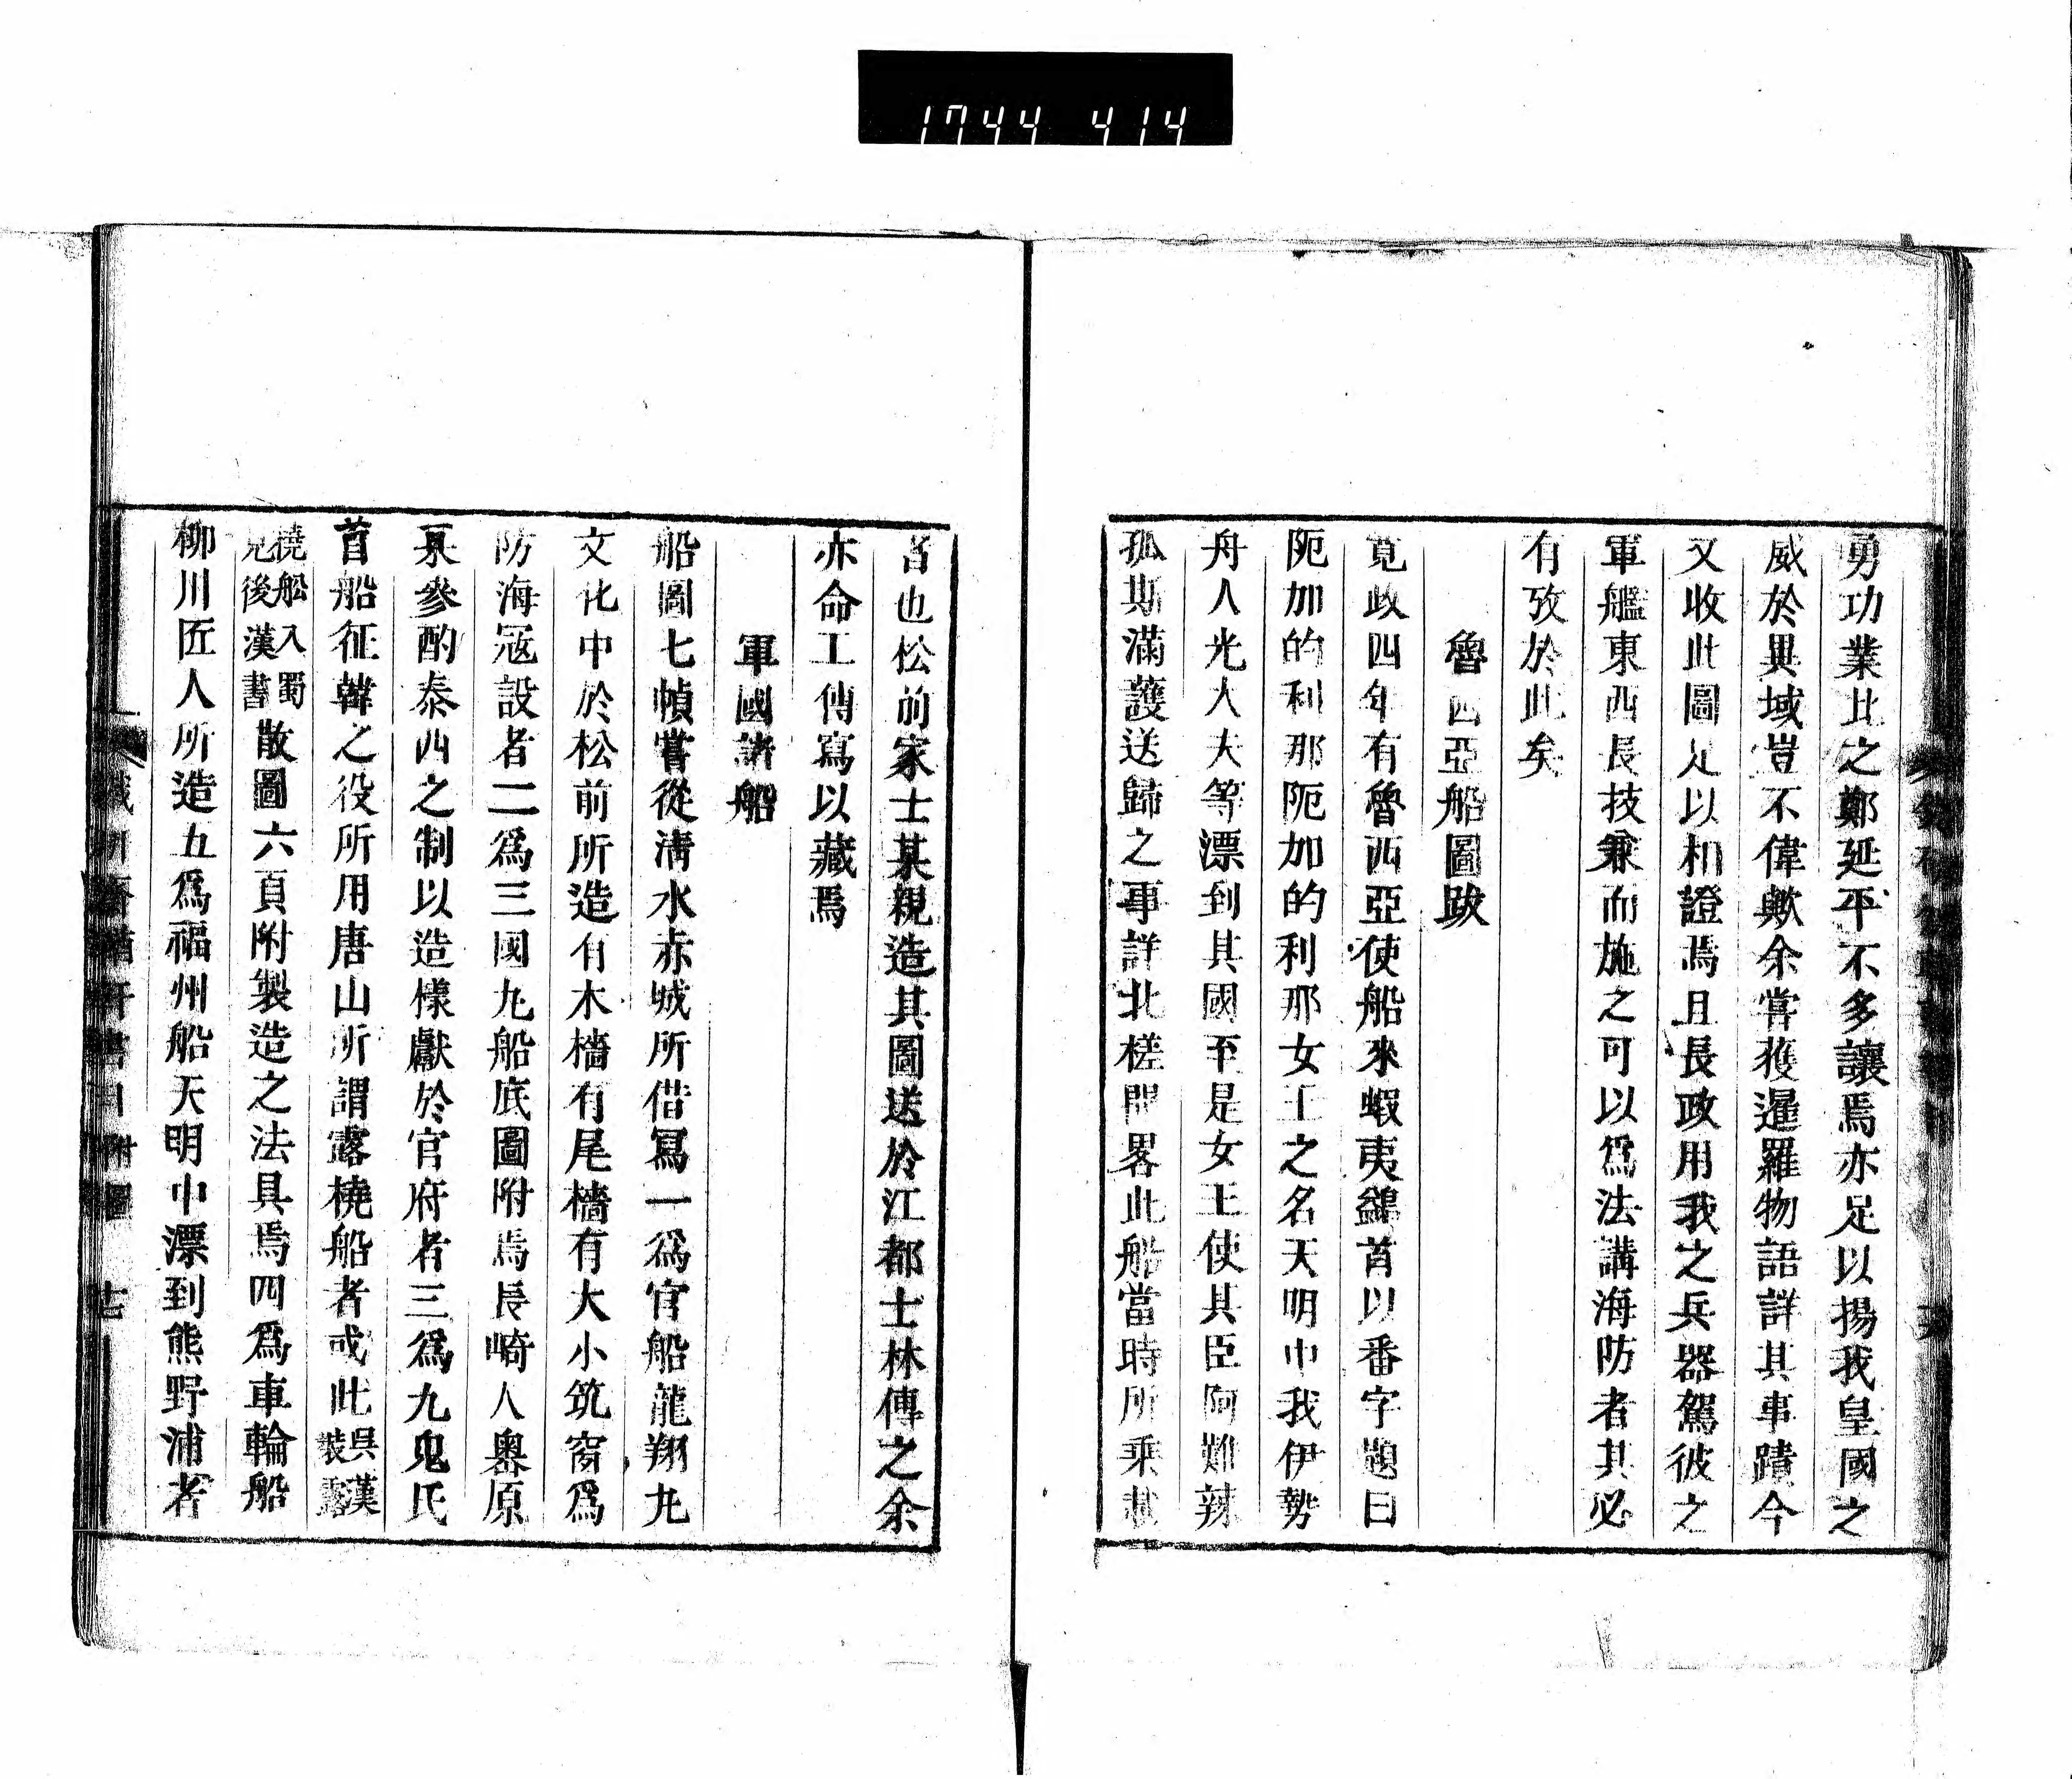 1744 414
勇功業比之鄭延平不多讓焉亦足以揚我皇國之
威於異域豈不偉歟余嘗獲暹羅物語詳其事蹟今
又收此圖足以相證焉且長政用我之兵器駕彼之
軍艦東西長技兼而施之可以爲法講海防者其必
有攷於此矣
魯西亞船圖跋
寬政四年有魯西亞使船來蝦夷鷁首以番字題曰
阨加的利那阨加的利那女王之名天明中我伊勢
舟人光大夫等漂到其國至是女王使其臣阿難辣
孤斯滿護送歸之事詳北槎聞畧此船當時所乘載
者也松前家士某親造其圖送於江都士林傳之余
亦命工傳寫以藏焉
軍國諸船
船圖七幀嘗從淸水赤城所借冩一爲官船龍翔丸
文化中於松前所造有木檣有尾檣有大小筑窗爲
防海寇設者二爲三國丸船底圖附焉長崎人奧原
某參酌泰西之制以造樣獻於官府者三爲九鬼氏
首船征韓之役所用唐山所謂露橈船者或此吳漢裝露
橈舩入蜀見後漢書散圖六頁附製造之法具焉四爲車輪船
柳川匠人所造五爲福州船天明中漂到熊野浦者